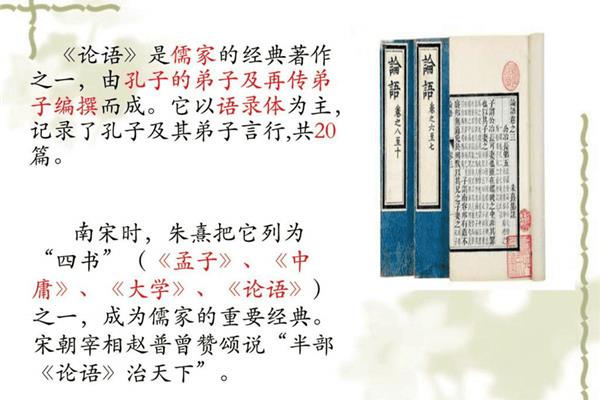 《论语》是儒家的经典著作
之一，由孔子的弟子及再传弟
子编撰而成。它以语录体为主，
记录了孔子及其弟子言行,共20
篇。
南宋时，朱熹把它列为
“四书”（《孟子》、《中
庸》、《大学》、《论语》）
之一，成为儒家的重要经典。
宋朝宰相赵普曾赞颂说“半部
《论语》治天下”。
論語
卷之八至十
論語
卷之六至七
論語卷之三
朱熹集註
公冶長第五